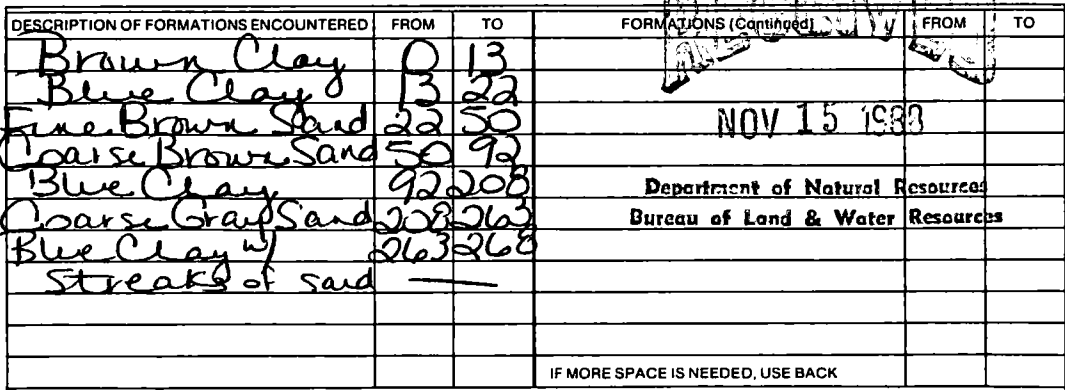 DESCRIPTION OF FORMATIONS ENCOUNTERED FROM TO FORMATIONS (Continued) FROM TO
Brown Clay 0 13
Blue Clay 13 22
Fine Brown Sand 22 50
Coarse Brown Sand 50 92
Blue Clay 92 208
Coarse Gray Sand 208 263
Blue Clay w/ 263 268
Streaks of sand —
NOV 15 1983
Department of Natural Resources
Bureau of Land & Water Resources
IF MORE SPACE IS NEEDED, USE BACK